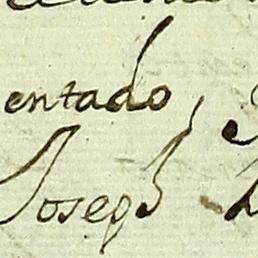 entado,
Joseph